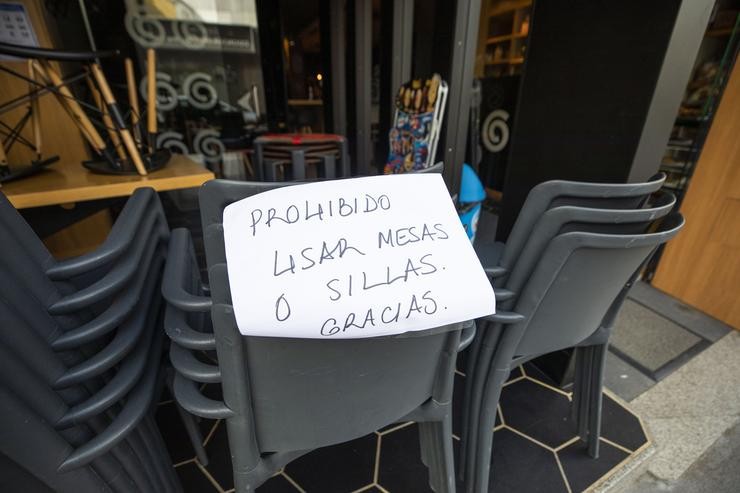 PROHIBIDO
USAR MESAS
O SILLAS.
GRACIAS.